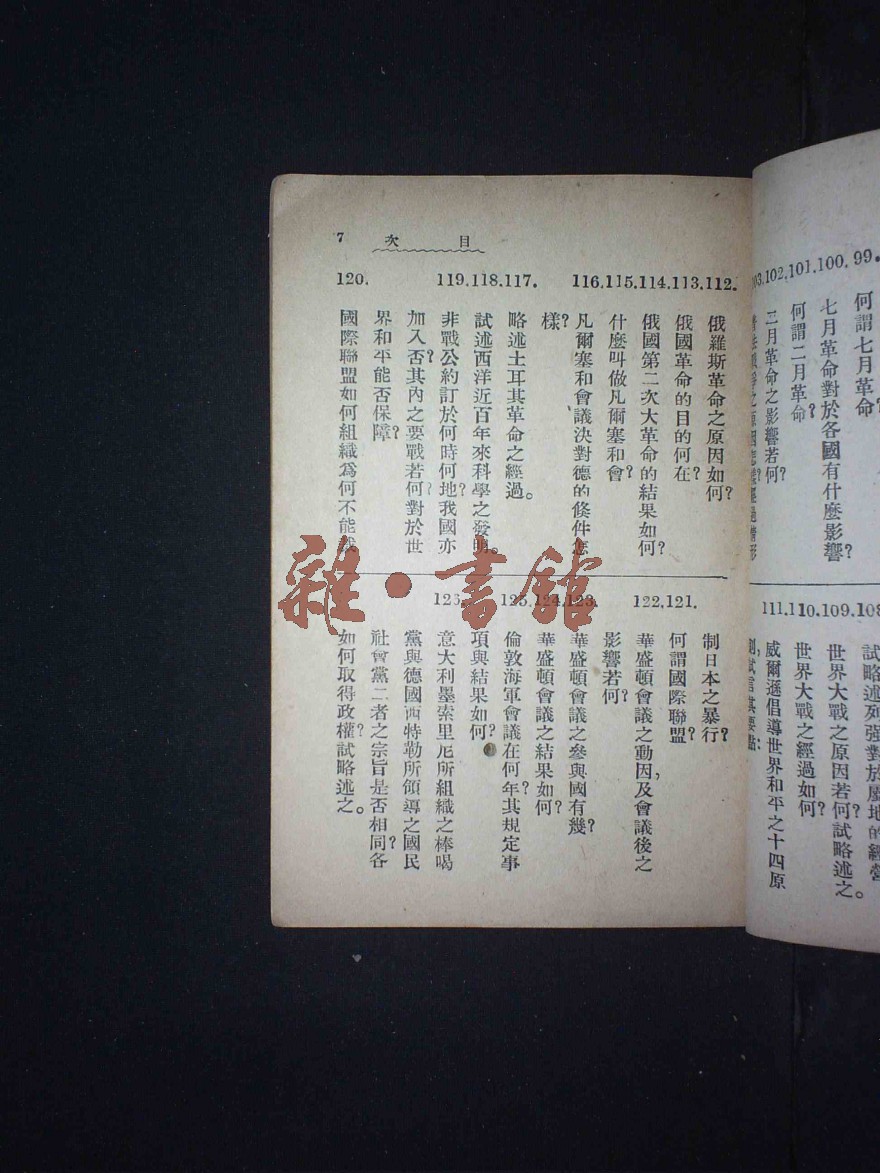 99.
何謂七月革命？
100.
七月革命對於各國有什麼影響？
101.
何謂二月革命？
102.
二月革命之影響若何？
103.
108
試略述列强對於
地的經營
109.
世界大戰之原因若何？試略述之。
110.
世界大戰之經過如何？
111.
威爾遜倡導世界和平之十四原
則，試言其要點：
目次
7
112.
俄羅斯革命之原因如何？
113.
俄國革命的目的何在？
114.
俄國第二次大革命的結果如何？
115.
什麼叫做凡爾塞和會？
116.
凡爾塞和會議決對德的條件怎
樣？
117.
略述土耳其革命之經過。
118.
試述西洋近百年來科學之發明。
119.
非戰公約訂於何時何地？我國亦
加入否？其內之要戰若何？對於世
界和平能否保障？
120.
國際聯盟如何組織爲何不能裁
制日本之暴行？
121.
何謂國際聯盟？
122.
華盛頓會議之動因，及會議後之
影響若何？
123.
華盛頓會議之參與國有幾？
124.
華盛頓會議之結果如何？
125.
倫敦海軍會議在何年？其規定事
項與結果如何？
126.
意大利墨索里尼所組織之棒喝
黨與德國西特勒所領導之國民
社會黨二者之宗旨是否相同？各
如何取得政權？試略述之。
雜·書館